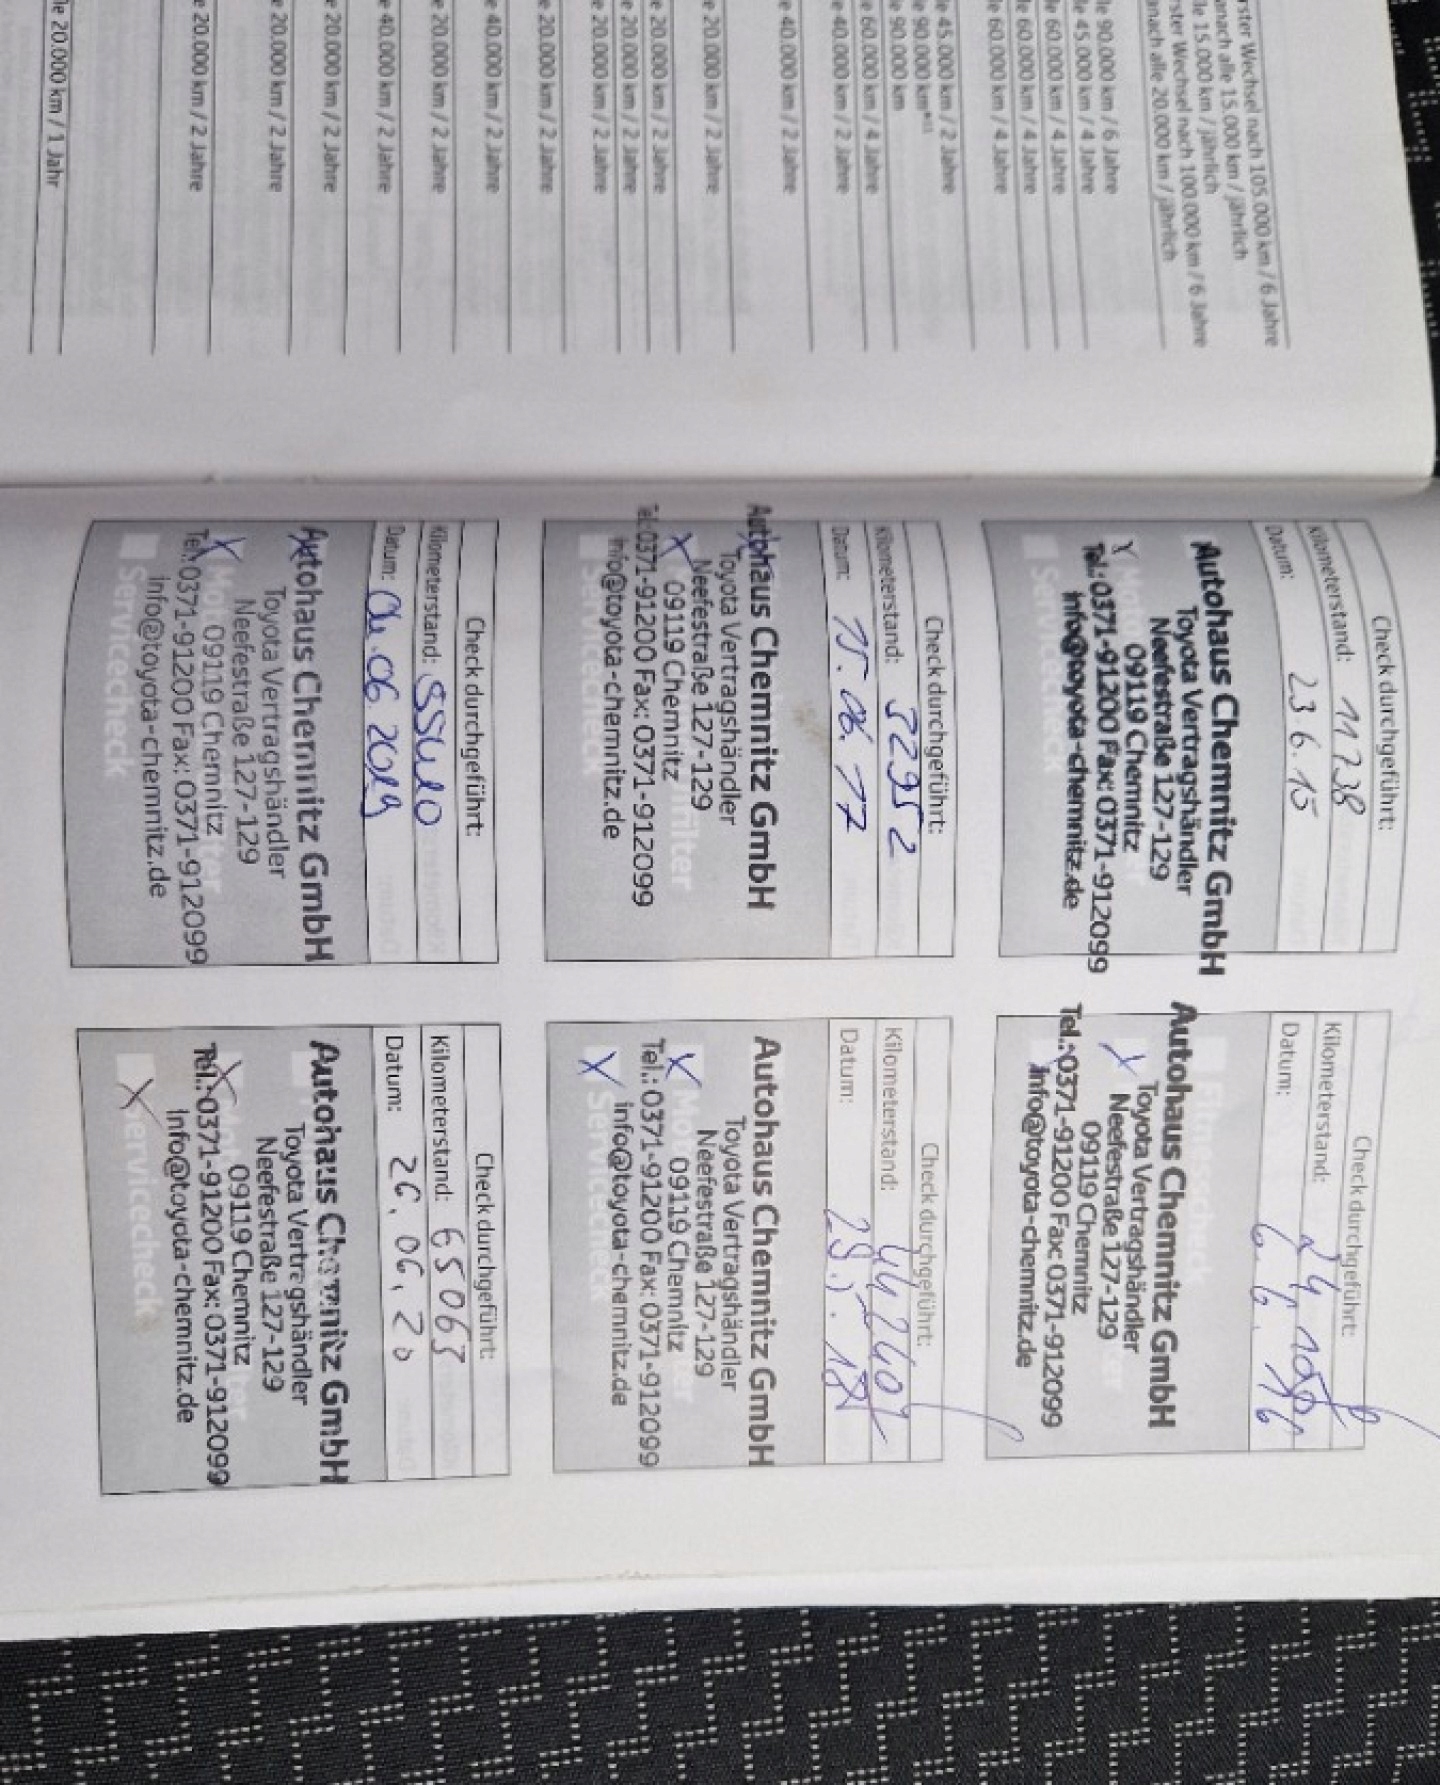 rster Wechsel nach 105.000 km / 6 Jahre
anach alle 15.000 km / jährlich
lle 15.000 km / jährlich
rster Wechsel nach 100.000 km / 6 Jahre
anach alle 20.000 km / jährlich
lle 90.000 km / 6 Jahre
le 45.000 km / 4 Jahre
le 60.000 km / 4 Jahre
le 60.000 km / 4 Jahre
le 60.000 km / 4 Jahre
le 45.000 km / 2 Jahre
le 90.000 km
le 90.000 km
e 60.000 km / 4 Jahre
e 40.000 km / 2 Jahre
e 40.000 km / 2 Jahre
e 20.000 km / 2 Jahre
e 20.000 km / 2 Jahre
e 20.000 km / 2 Jahre
e 20.000 km / 2 Jahre
e 20.000 km / 2 Jahre
e 40.000 km / 2 Jahre
e 20.000 km / 2 Jahre
e 40.000 km / 2 Jahre
e 20.000 km / 2 Jahre
e 20.000 km / 2 Jahre
e 20.000 km / 2 Jahre
le 20.000 km / 1 Jahr
Check durchgeführt:
Kilometerstand: 11238
Datum: 23.6.15
Autohaus Chemnitz GmbH
Toyota Vertragshändler
Neefestraße 127-129
09119 Chemnitz
Tel.: 0371-91200 Fax: 0371-912099
info@toyota-chemnitz.de
Servicecheck
Check durchgeführt:
Kilometerstand:
Datum: 6.6.16
Fitnesscheck
Autohaus Chemnitz GmbH
Toyota Vertragshändler
Neefestraße 127-129
09119 Chemnitz
Tel.: 0371-91200 Fax: 0371-912099
info@toyota-chemnitz.de
Check durchgeführt:
Kilometerstand: 32952
Datum: 15.06.17
Autohaus Chemnitz GmbH
Toyota Vertragshändler
Neefestraße 127-129
09119 Chemnitz
Tel.: 0371-91200 Fax: 0371-912099
info@toyota-chemnitz.de
Servicecheck
Check durchgeführt:
Kilometerstand:
Datum:
Autohaus Chemnitz GmbH
Toyota Vertragshändler
Neefestraße 127-129
09119 Chemnitz
Tel.: 0371-91200 Fax: 0371-912099
info@toyota-chemnitz.de
Servicecheck
Check durchgeführt:
Kilometerstand:
Datum: 04.06.2019
Autohaus Chemnitz GmbH
Toyota Vertragshändler
Neefestraße 127-129
09119 Chemnitz
Tel.: 0371-91200 Fax: 0371-912099
info@toyota-chemnitz.de
Servicecheck
Check durchgeführt:
Kilometerstand: 65063
Datum: 26.06.20
Autohaus Chemnitz GmbH
Toyota Vertragshändler
Neefestraße 127-129
09119 Chemnitz
Tel.: 0371-91200 Fax: 0371-912099
info@toyota-chemnitz.de
Servicecheck